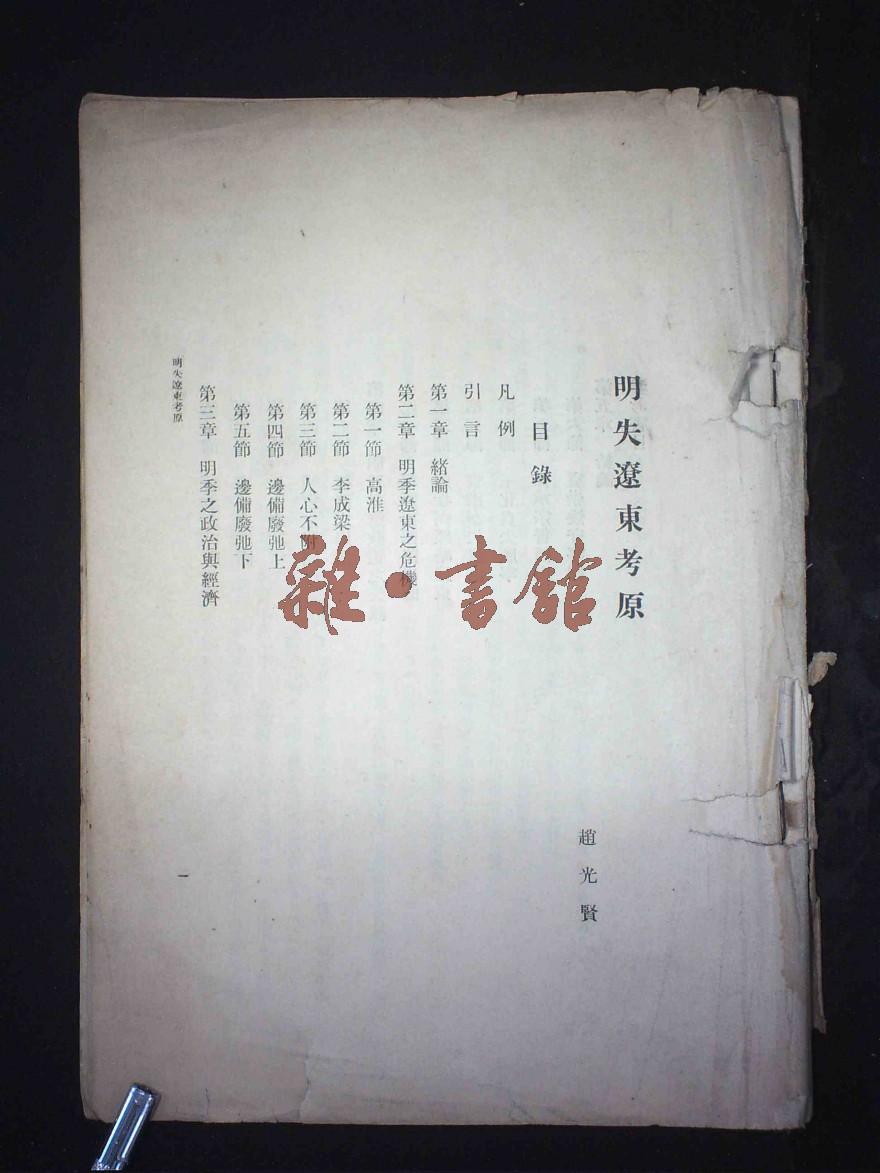 明失遼東考原
趙光賢
目錄
凡例
引言
第一章 緒論
第二章 明季遼東之危機
第一節 高淮
第二節 李成梁
第三節 人心不附
第四節 邊備廢弛上
第五節 邊備廢弛下
第三章 明季之政治與經濟
明失遼東考原
一
雜·書館